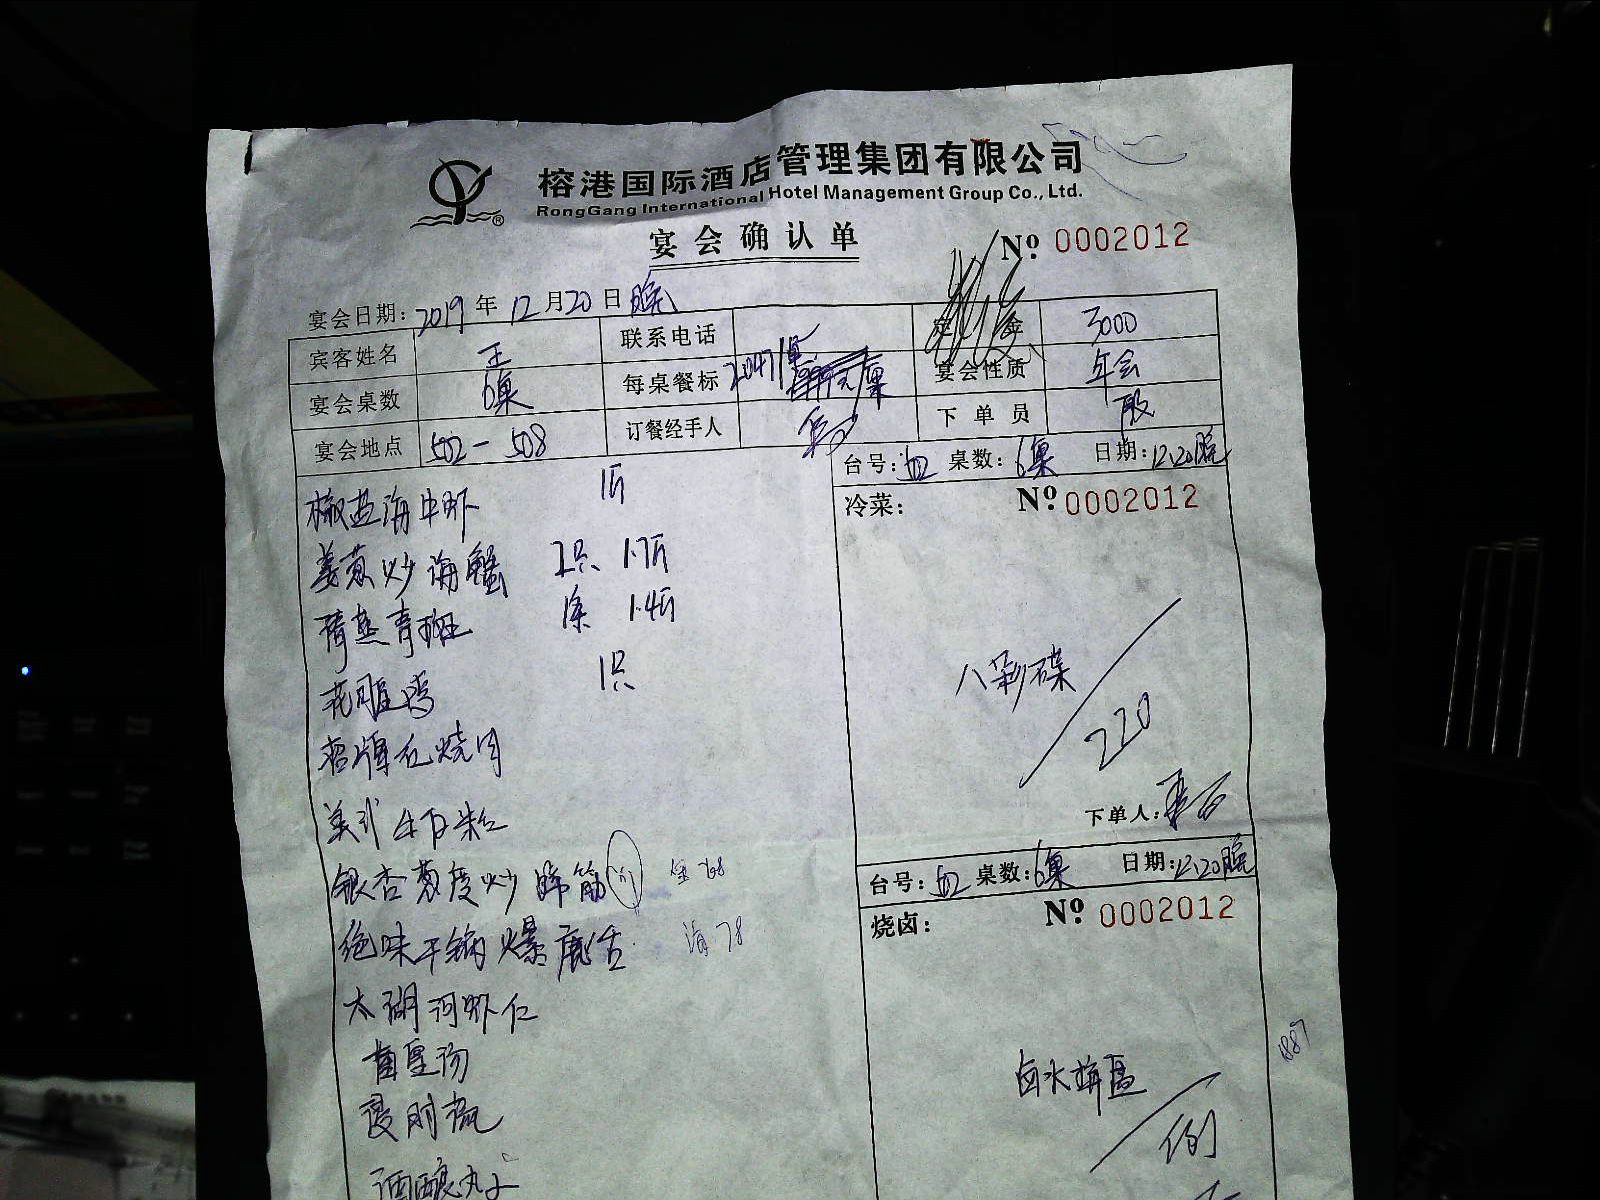 榕港国际酒店管理集团有限公司
RongGang International Hotel Management Group Co., Ltd.
®
宴会确认单
Nº 0002012
宴会日期: 2019 年 12 月 20 日 晚
宾客姓名 王 联系电话 定金 3000
宴会桌数 6桌 每桌餐标 2047/桌 宴会性质 年会
宴会地点 502-508 订餐经手人 下单员 殷
台号: 桌数: 6桌 日期: 12.20晚
冷菜: Nº 0002012
椒盐海中虾 1斤
姜葱炒海蟹 2只 1.7斤
清蒸青斑 1条 1.4斤
花雕鸡 1只
招牌红烧肉
美式牛仔粒
八彩碟
220
下单人:
银杏芦笋炒蹄筋
绝味干锅爆鹿舌 78
太湖河虾仁
菌皇汤
时蔬
酒酿丸子
台号: 桌数: 6桌 日期: 12.20晚
烧卤: Nº 0002012
卤水拼盘
例